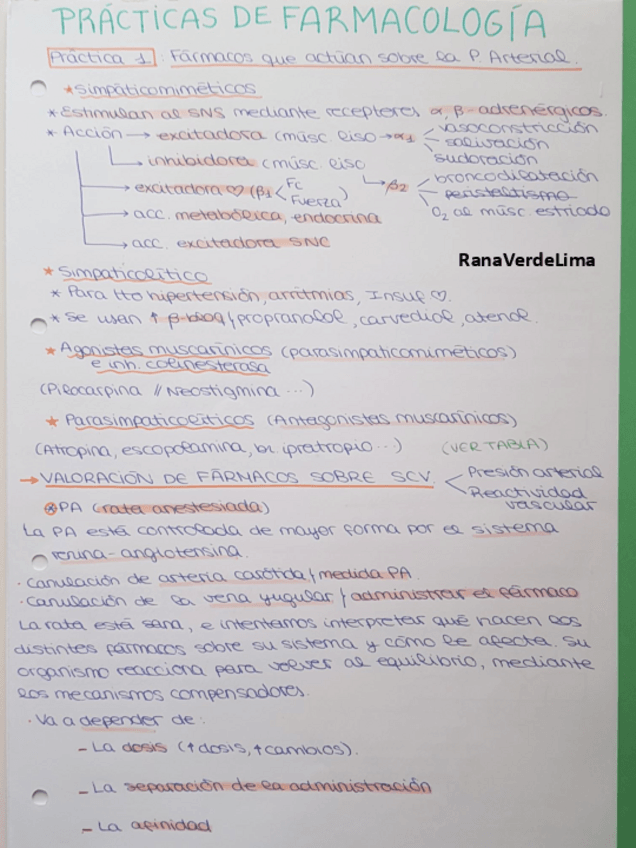 PRÁCTICAS DE FARMACOLOGÍA
Práctica 1: Fármacos que actúan sobre la P. Arterial.
* Simpáticomiméticos
* Estimulan al SNS mediante receptores α, β-adrenérgicos.
* Acción → excitadora (músc. liso → α1 < vasoconstricción
salivación
sudoración
→ inhibidora (músc. liso
→ β2 < broncodilatación
peristaltismo
O2 al músc. estriado
→ excitadora ♡ (β1 < Fc
Fuerza)
→ acc. metabólica, endocrina
→ acc. excitadora SNC
RanaVerdeLima
* Simpaticolítico
* Para tto hipertensión, arritmias, Insuf ♡.
* Se usan ↑ β-bloq / propranolol, carvediol, atenol.
* Agonistas muscarínicos (parasimpaticomiméticos)
e inh. colinesterasa
(Pilocarpina // Neostigmina ...)
* Parasimpaticolíticos (Antagonistas muscarínicos)
(Atropina, escopolamina, br. ipratropio...) (VER TABLA)
→ VALORACIÓN DE FÁRMACOS SOBRE SCV. < Presión arterial
Reactividad
vascular
* PA (rata anestesiada)
La PA está controlada de mayor forma por el sistema
renina-angiotensina.
· Canulación de arteria carótida / medida PA.
· Canulación de la vena yugular / administrar el fármaco
La rata está sana, e intentamos interpretar qué hacen los
distintos fármacos sobre su sistema y cómo le afecta. Su
organismo reacciona para volver al equilibrio, mediante
los mecanismos compensadores.
· Va a depender de:
- La dosis (↑dosis, ↑cambios).
- La separación de la administración
- La afinidad